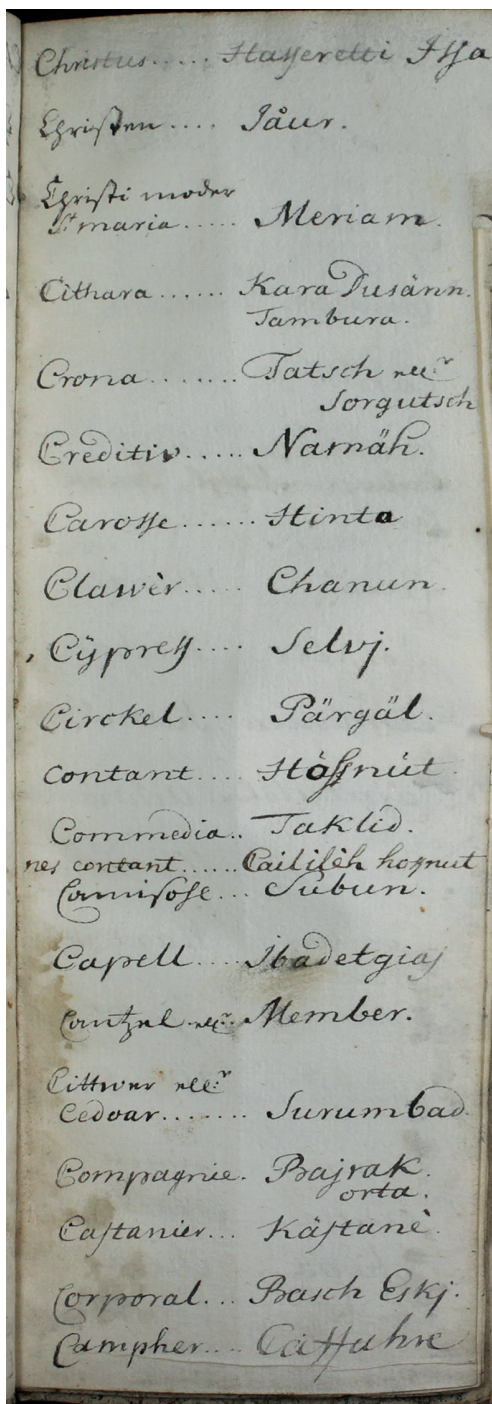 Christus..... Hasseretti Issa
Christen.... Jåur.
Christi moder
St maria..... Meriam.
Cithara...... Kara Dusänn.
Tambura.
Crona........ Tatsch ell:r
Sorgutsch
Creditiv..... Namäh.
Carosse...... Hinto
Clawèr..... Chanun.
Cÿpress.... Selvj.
Circkel.... Pärgäl.
Contant.... Hössnüt
Commedia.. Taklid.
nes contant...... Cailileh hosnut
Camisohe... Subun.
Capell.... Ibadetgiaj
Cantzel ell:r.. Member.
Cittwer ell:r
Cedoar....... Surumbad.
Compagnie. Bajrak.
orta.
Castanier... Kästanè
Corporal... Basch Eskj.
Campher.... Caffuhre